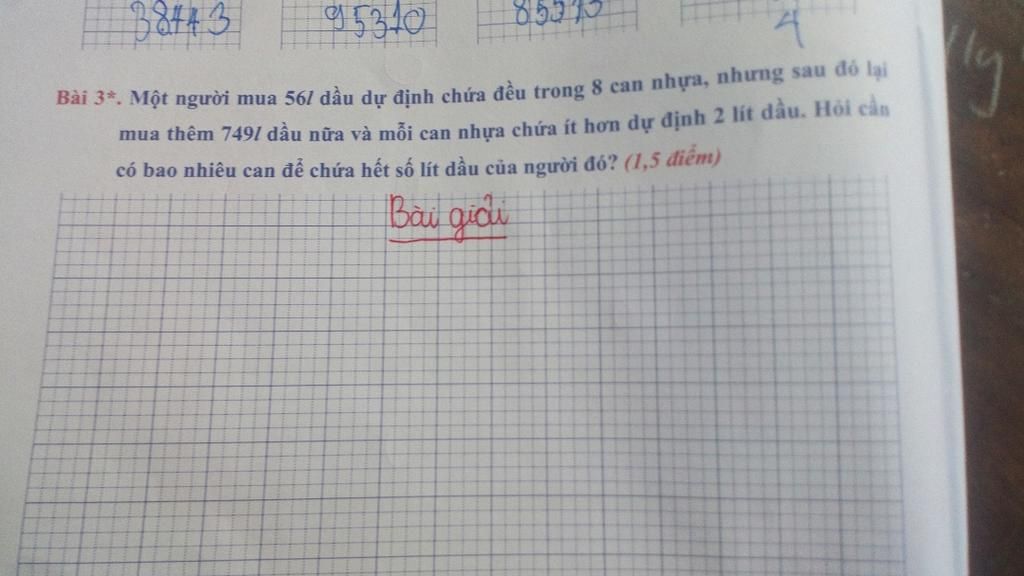 38443 95310 85575
4
Bài 3*. Một người mua 56l dầu dự định chứa đều trong 8 can nhựa, nhưng sau đó lại
mua thêm 749l dầu nữa và mỗi can nhựa chứa ít hơn dự định 2 lít dầu. Hỏi cần
có bao nhiêu can để chứa hết số lít dầu của người đó? (1,5 điểm)
Bài giải